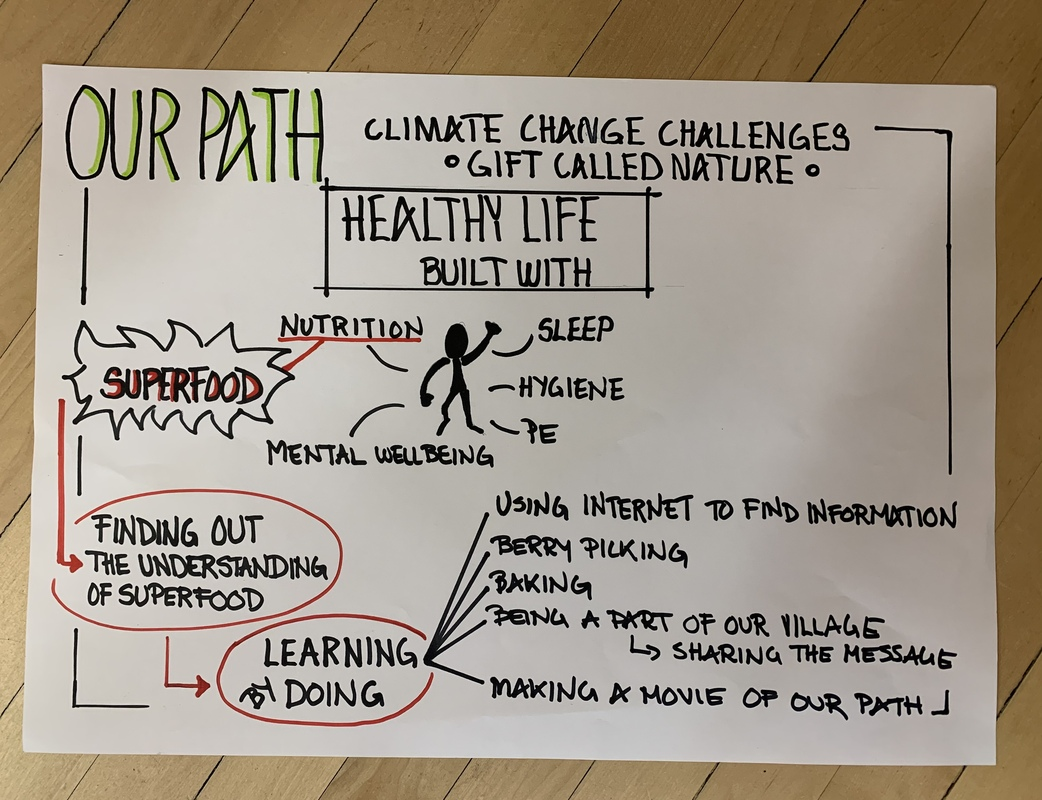 OUR PATH
CLIMATE CHANGE CHALLENGES
• GIFT CALLED NATURE •
HEALTHY LIFE
BUILT WITH
NUTRITION
SLEEP
SUPERFOOD
HYGIENE
PE
MENTAL WELLBEING
FINDING OUT
THE UNDERSTANDING
OF SUPERFOOD
LEARNING
BY DOING
USING INTERNET TO FIND INFORMATION
BERRY PICKING
BAKING
BEING A PART OF OUR VILLAGE
↳ SHARING THE MESSAGE
MAKING A MOVIE OF OUR PATH